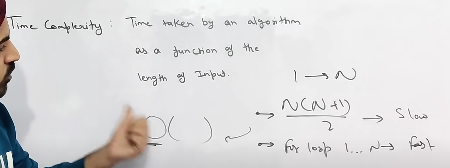 Time Complexity : Time taken by an algorithm
as a function of the
length of Input.
1 → N
→ N(N+1)/2 → Slow
O( )
→ for loop 1... N → fast